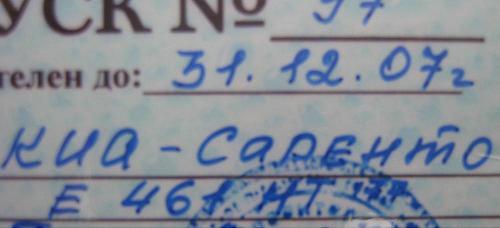 УСК № 97
телен до: 31.12.07г
КИА - Сарento
Е 461 НТ 77